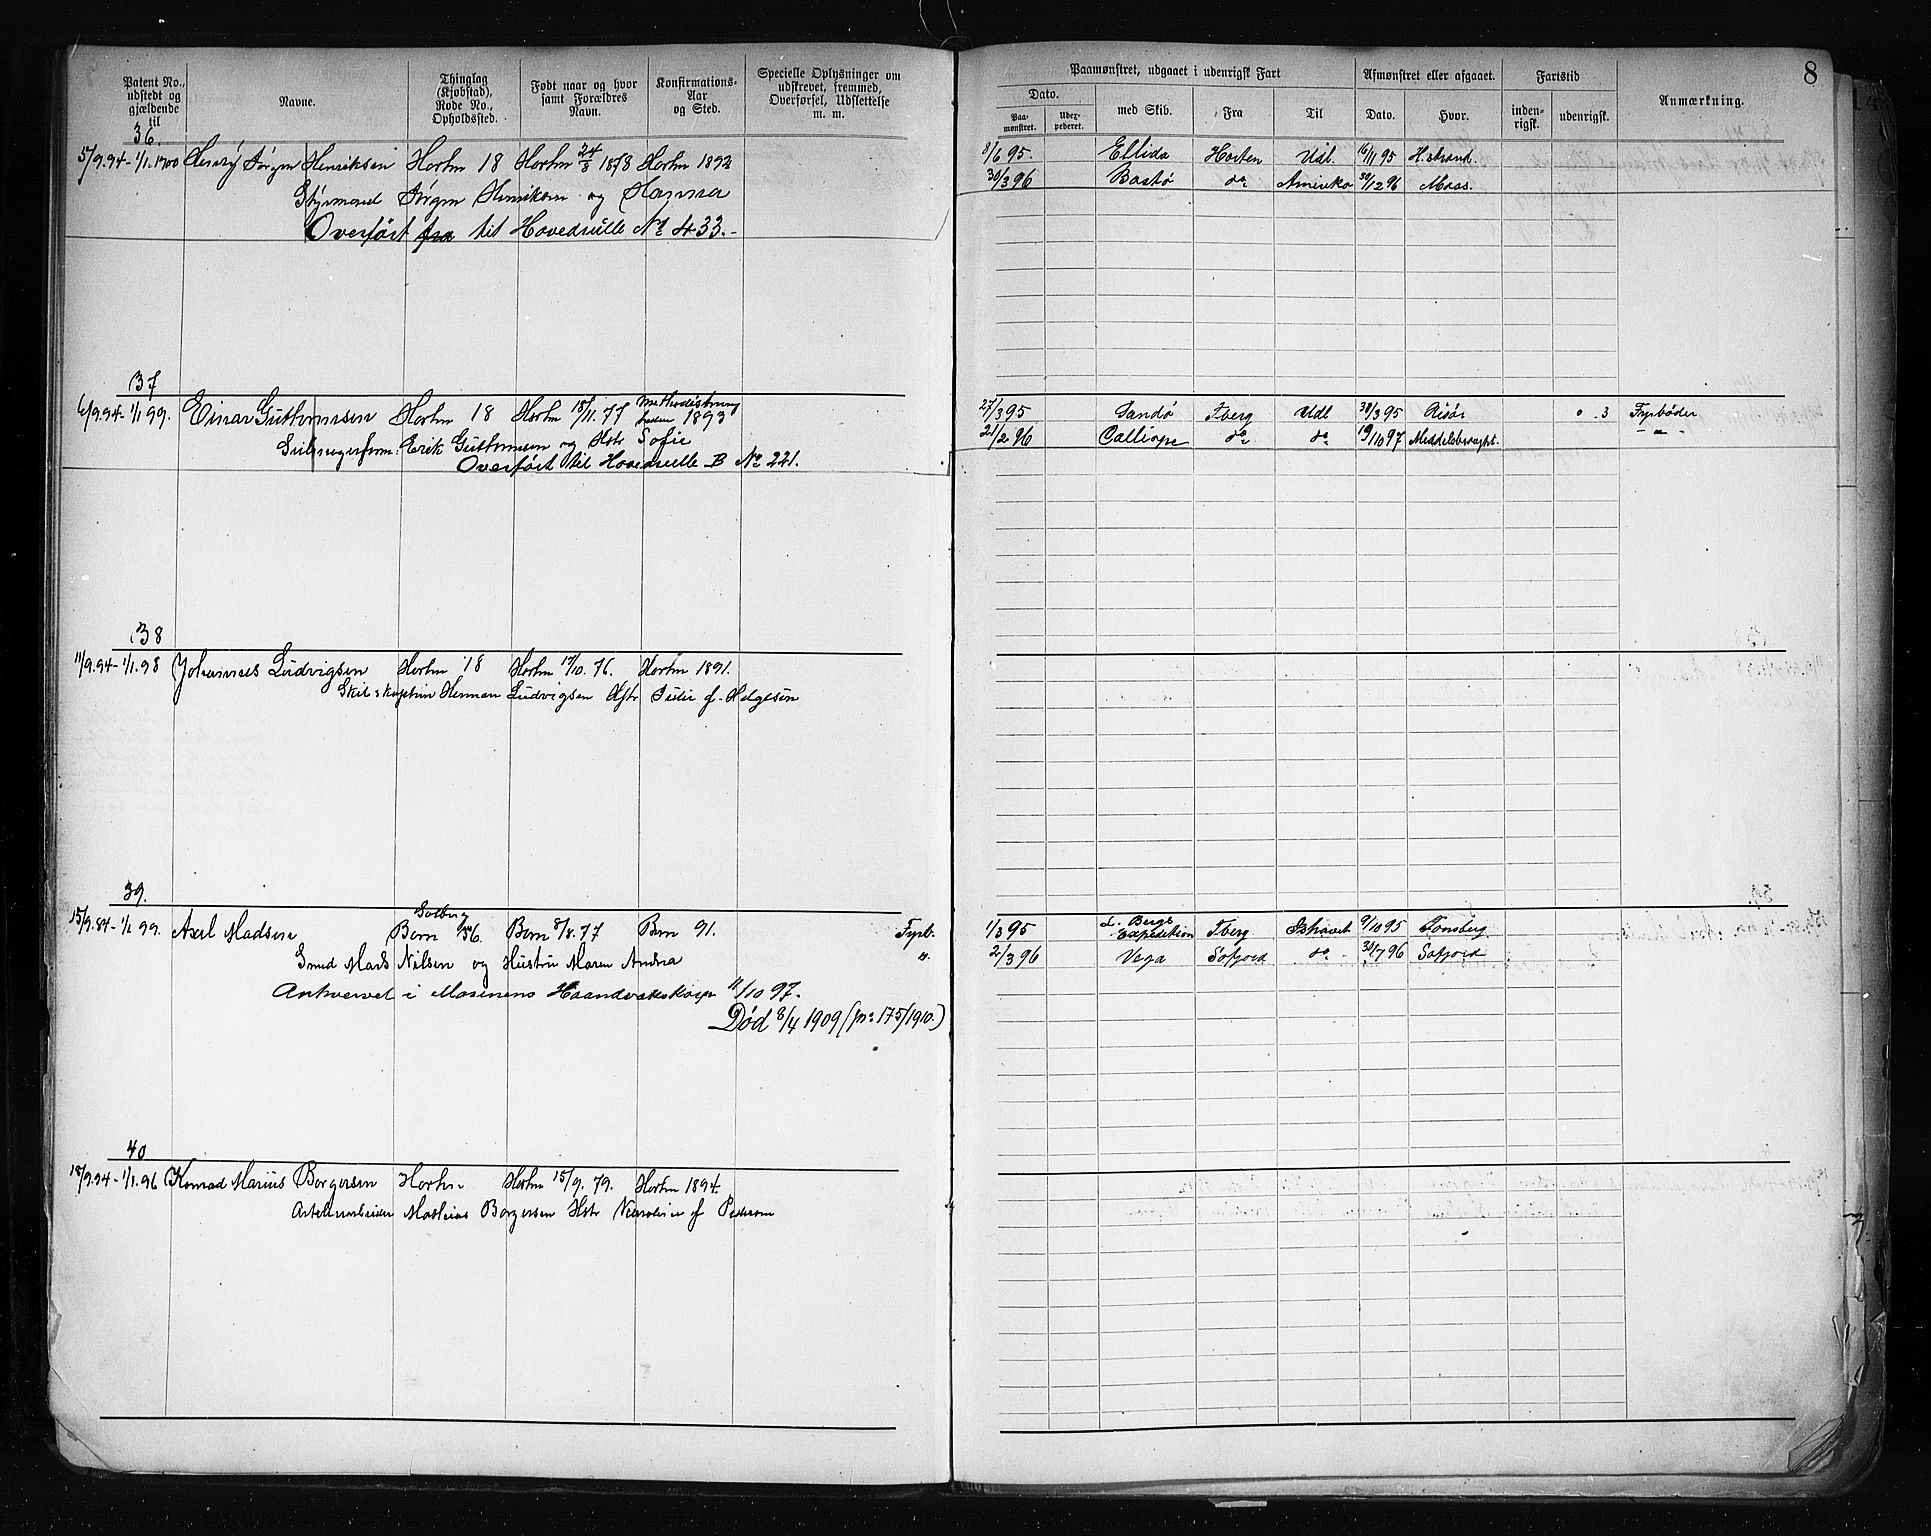 8
Patent No., udstedt og gjældende til
Navne.
Thinglag (Kjøbstad), Rode No., Opholdssted.
Født naar og hvor samt Forældres Navn.
Konfirmations-Aar og Sted.
Specielle Oplysninger om udskrevet, fremmed, Overførsel, Udslettelse m. m.
Paamønstret, udgaaet i udenrigsk Fart
Afmønstret eller afgaaet.
Fartstid
Anmærkning.
Dato.
Paa-mønstret.
Udex-pederet.
med Skib.
Fra
Til
Dato.
Hvor.
inden-rigsk.
udenrigsk.
36.
5/9.94-1/1.1900 Henry Jørgen Henriksen Horten 18 Horten 24/3 1878 Horten 1892
8/6 95. Ellida Horten Udl. 16/11 95 H.strand.
Styrmand Jørgen Henriksen og Hanna
30/3 96 Bastø do Amerika 30/12 96 Moss.
Overført fra til Hovedrulle No 433.-
37
6/9.94-1/1 99. Einar Guttormsen Horten 18 Horten 15/11.77 Methodistmenigheden 1893
27/3 95 Sandø Tberg Udl 30/3 95 Risør 0 .3 Fyrbøder
Erik Guttormsen og Hstr Sofie
21/2 96 Calliope do do 19/10 97 - " -
Overført til Hovedrulle B No 221.
38
11/9.94-1/1.98 Johannes Ludvigsen Horten 18 Horten 17/10.76. Horten 1891.
Skibskaptein Herman Ludvigsen Hstr Julie f. Helgesen
39.
15/9.84-1/1 99. Axel Madsen Solberg Born 56. Born 8/8.77 Born 91. Fyrb.
1/3 95 L. Bergs Expedition Tberg Ishavet 9/10 95 Tønsberg
Smed Mads Nilsen og Hustru Maren Andrea "
2/3 96 Vega Sefjord do 30/7 96 Sefjord
Anhvervet i Marinens Haandværkskorps 11/10 97.
Død 8/4 1909 (Jn: 175/1910.)
40
18/9.94-1/1.96 Konrad Marius Borgersen Horten Horten 15/9.79. Horten 1894.
Mathias Borgersen Hstr f Pedersen